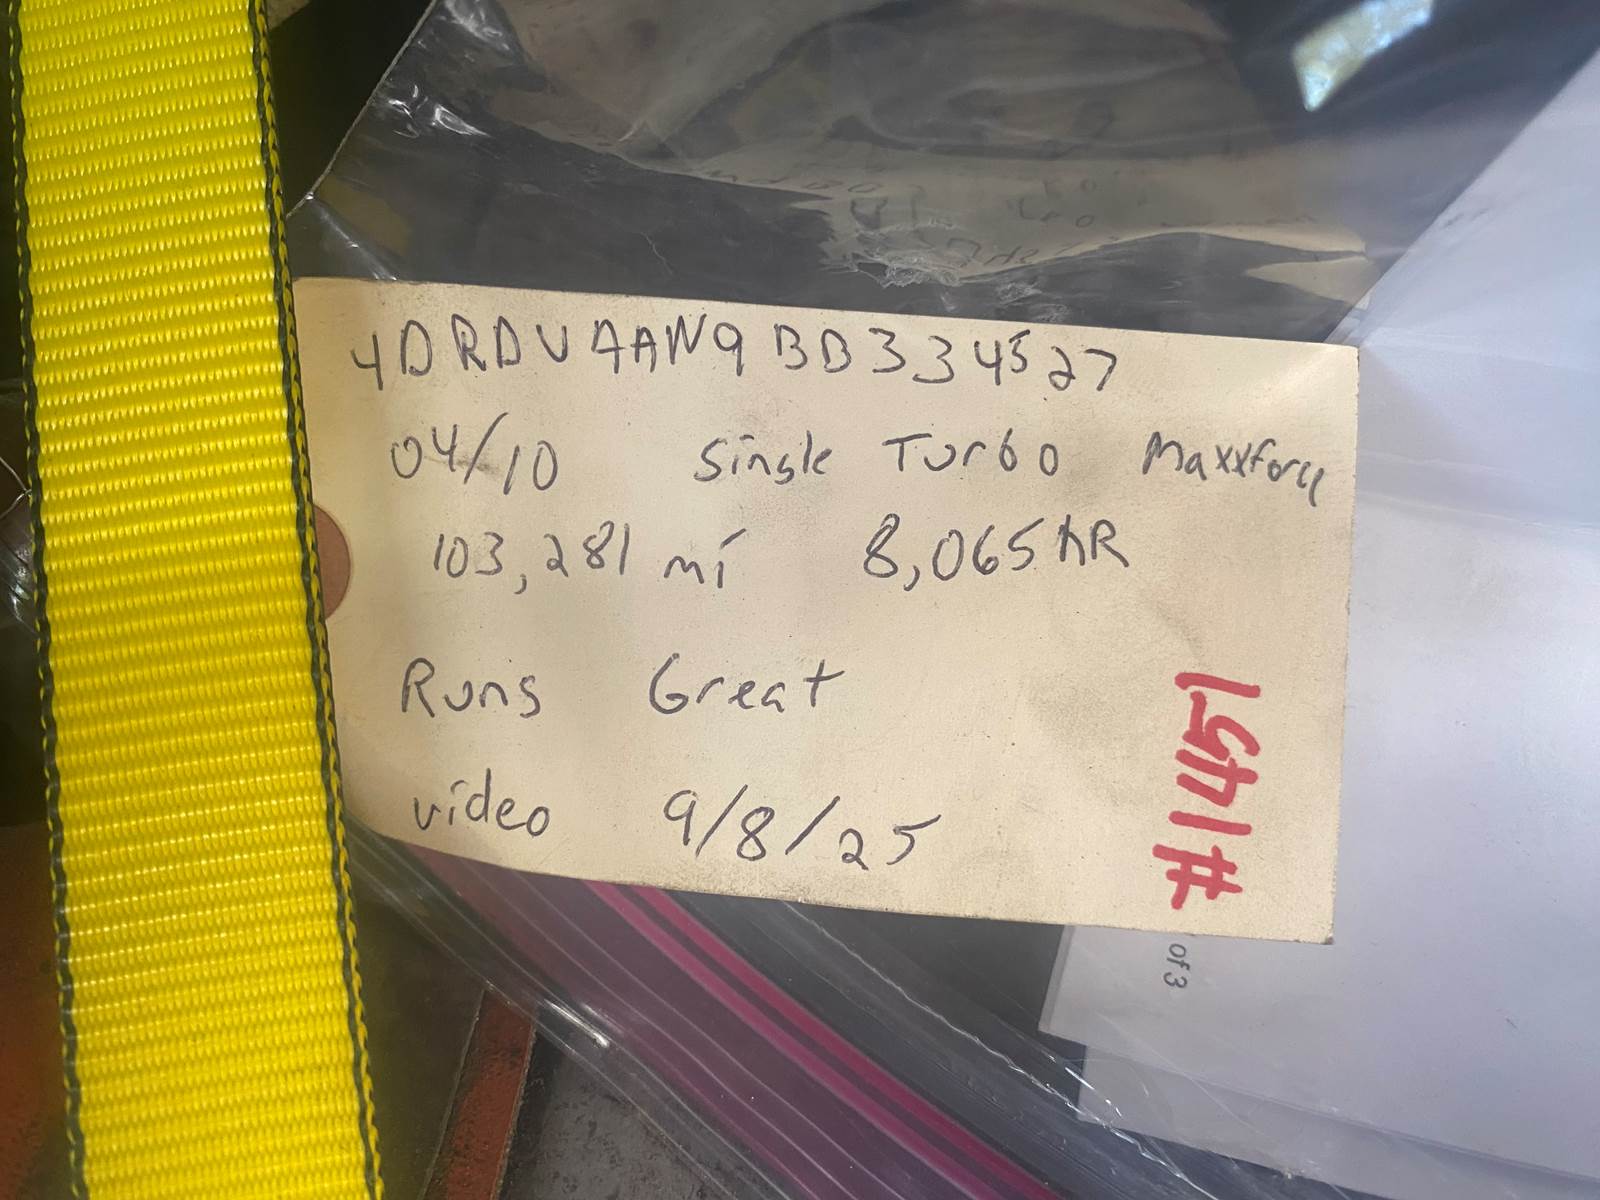 4DRDVAAN9BB334527
04/10 Single Turbo Maxxforce
103,281 mi 8,065 hR
Runs Great
video 9/8/25
#1451
of 3